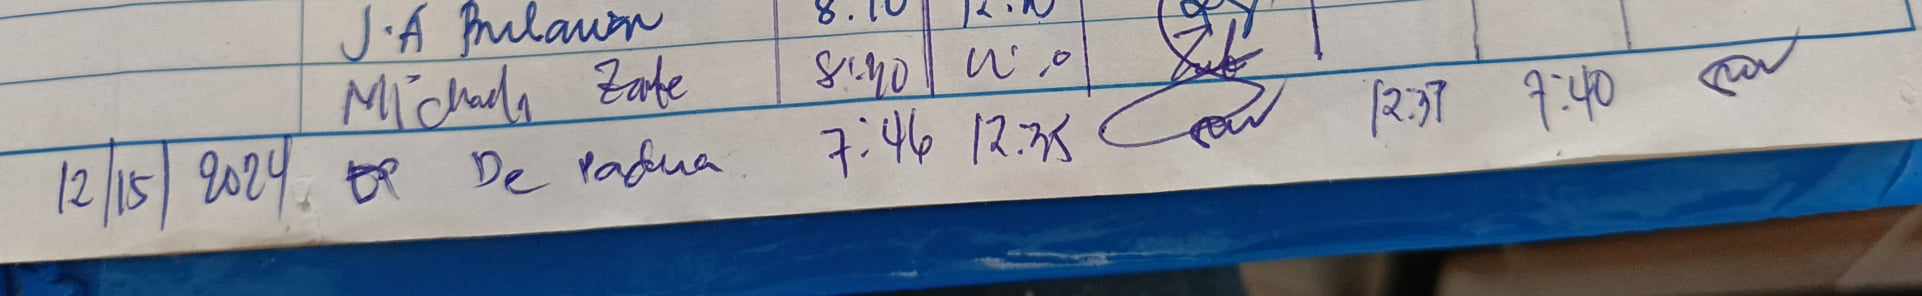 J.A Bulawan 8:10 12:10
Michael Zate 8:40
12/15/2024 De Padua 7:46 12:35 12:37 7:40